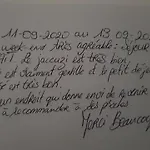 11-09-2020 au 13-09-2020
week end très agréable. Séjour
Le jacuzi est très bien
est vraiment gentille et le petit déj
est très bien.
un endroit qui donne envie de revenir
à le commander à des proches
Merci Beaucoup